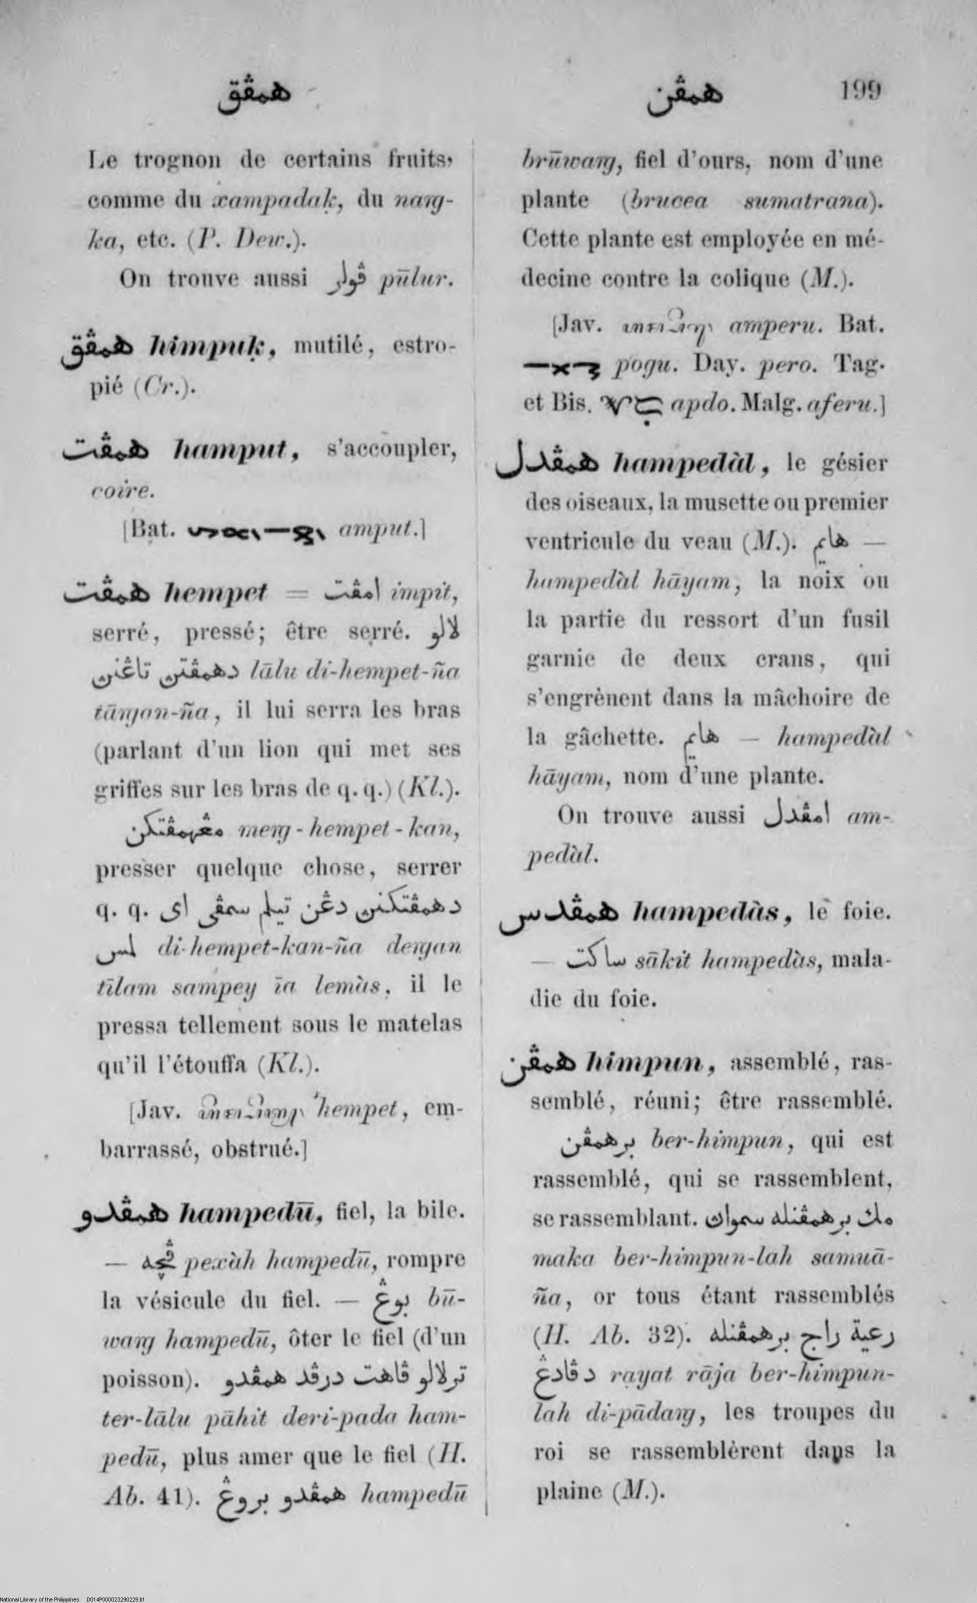 همڤق
همڤن 199
Le trognon de certains fruits,
comme du xampadaḳ, du narg-
ka, etc. (P. Dew.).
On trouve aussi ڤولر pūlur.
همڤق himpuḳ, mutilé, estro-
pié (Cr.).
همڤت hamput, s'accoupler,
coire.
[Bat. amput.]
همڤت hempet = امڤت impit,
serré, pressé; être serré. لالو
دهمڤتن تاڠنن lālu di-hempet-ña
tārgan-ña, il lui serra les bras
(parlant d'un lion qui met ses
griffes sur les bras de q. q.) (Kl.).
مڠهمڤتكن merg-hempet-kan,
presser quelque chose, serrer
q. q. دهمڤتكنن دڠن تيلم سمڤي اي
لمس di-hempet-kan-ña dergan
tīlam sampey īa lemàs, il le
pressa tellement sous le matelas
qu'il l'étouffa (Kl.).
[Jav. hempet, em-
barrassé, obstrué.]
همڤدو hampedū, fiel, la bile.
— ڤچه pexàh hampedū, rompre
la vésicule du fiel. — بوڠ bū-
warg hampedū, ôter le fiel (d'un
poisson). ترلالو ڤاهت درڤد همڤدو
ter-lālu pāhit deri-pada ham-
pedū, plus amer que le fiel (H.
Ab. 41). همڤدو بروڠ hampedū
brūwarg, fiel d'ours, nom d'une
plante (brucea sumatrana).
Cette plante est employée en mé-
decine contre la colique (M.).
[Jav. amperu. Bat.
pogu. Day. pero. Tag.
et Bis. apdo. Malg. aferu.]
همڤدل hampedàl, le gésier
des oiseaux, la musette ou premier
ventricule du veau (M.). هايم —
hampedàl hāyam, la noix ou
la partie du ressort d'un fusil
garnie de deux crans, qui
s'engrènent dans la mâchoire de
la gâchette. هايم — hampedàl
hāyam, nom d'une plante.
On trouve aussi امڤدل am-
pedàl.
همڤدس hampedàs, le foie.
— ساكت sākit hampedàs, mala-
die du foie.
همڤن himpun, assemblé, ras-
semblé, réuni; être rassemblé.
برهمڤن ber-himpun, qui est
rassemblé, qui se rassemblent,
se rassemblant. مك برهمڤنله سموان
maka ber-himpun-lah samuā-
ña, or tous étant rassemblés
(H. Ab. 32). رعية راج برهمڤنله
دڤادڠ rayat rāja ber-himpun-
lah di-pādarg, les troupes du
roi se rassemblèrent dans la
plaine (M.).
National Library of the Philippines